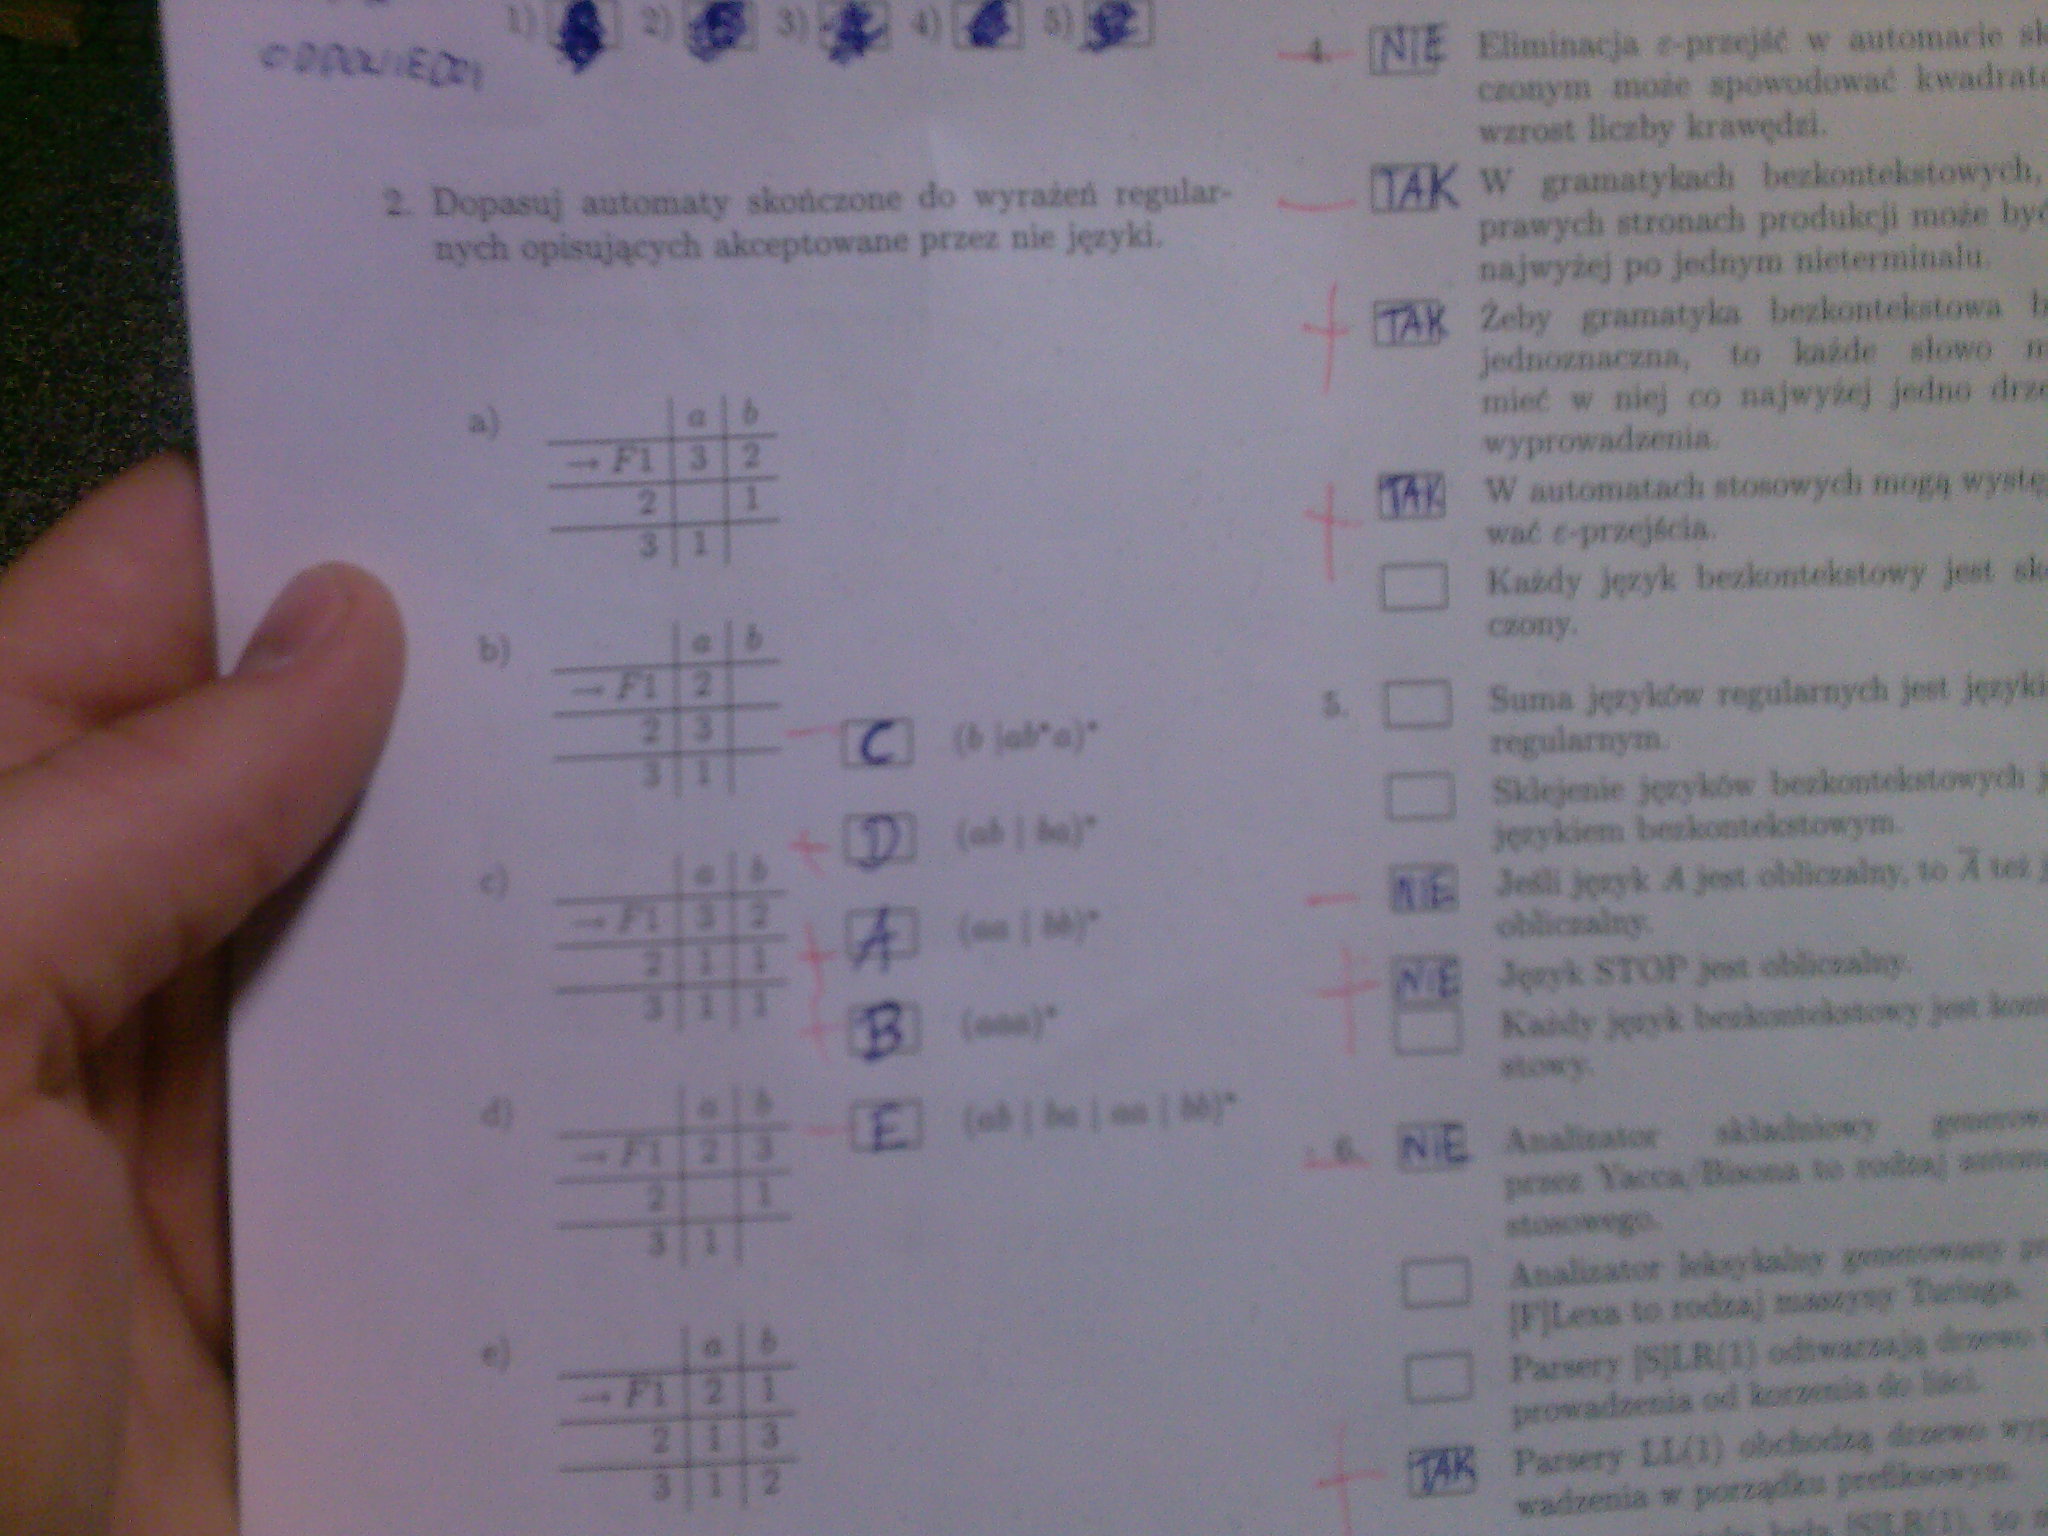 1) 2) 3) 4) 5)
ODPOWIEDZI
2. Dopasuj automaty skończone do wyrażeń regular-
nych opisujących akceptowane przez nie języki.
a)
a b
→ F1 3 2
2 1
3 1
b)
a b
→ F1 2
2 3
3 1
c)
a b
→ F1 3 2
2 1 1
3 1 1
d)
a b
→ F1 2 3
2 1
3 1
e)
a b
→ F1 2 1
2 1 3
3 1 2
C (b | ab*a)*
D (ab | ba)*
A (aa | bb)*
B (aaa)*
E (ab | ba | aa | bb)*
4. NIE Eliminacja ε-przejść w automacie
czonym może spowodować
wzrost liczby krawędzi.
TAK W gramatykach bezkontekstowych,
prawych stronach produkcji może
najwyżej po jednym nieterminalu.
TAK Żeby gramatyka bezkontekstowa
jednoznaczna, to każde słowo
mieć w niej co najwyżej jedno
wyprowadzenia.
TAK W automatach stosowych mogą
wać ε-przejścia.
Każdy język bezkontekstowy jest
czony.
5. Suma języków regularnych jest
regularnym.
Sklejenie języków bezkontekstowych
językiem bezkontekstowym.
NIE Jeśli język A jest obliczalny, to A też
obliczalny.
NIE Język STOP jest obliczalny.
Każdy język bezkontekstowy jest
stowy.
6. NIE Analizator składniowy
przez Yacca/Bisona to rodzaj
stosowego.
Analizator leksykalny generowany
[F]Lexa to rodzaj maszyny Turinga.
Parsery [S]LR(1) odtwarzają drzewo
prowadzenia od korzenia do liści.
TAK Parsery LL(1) obchodzą drzewo
wadzenia w porządku prefiksowym.